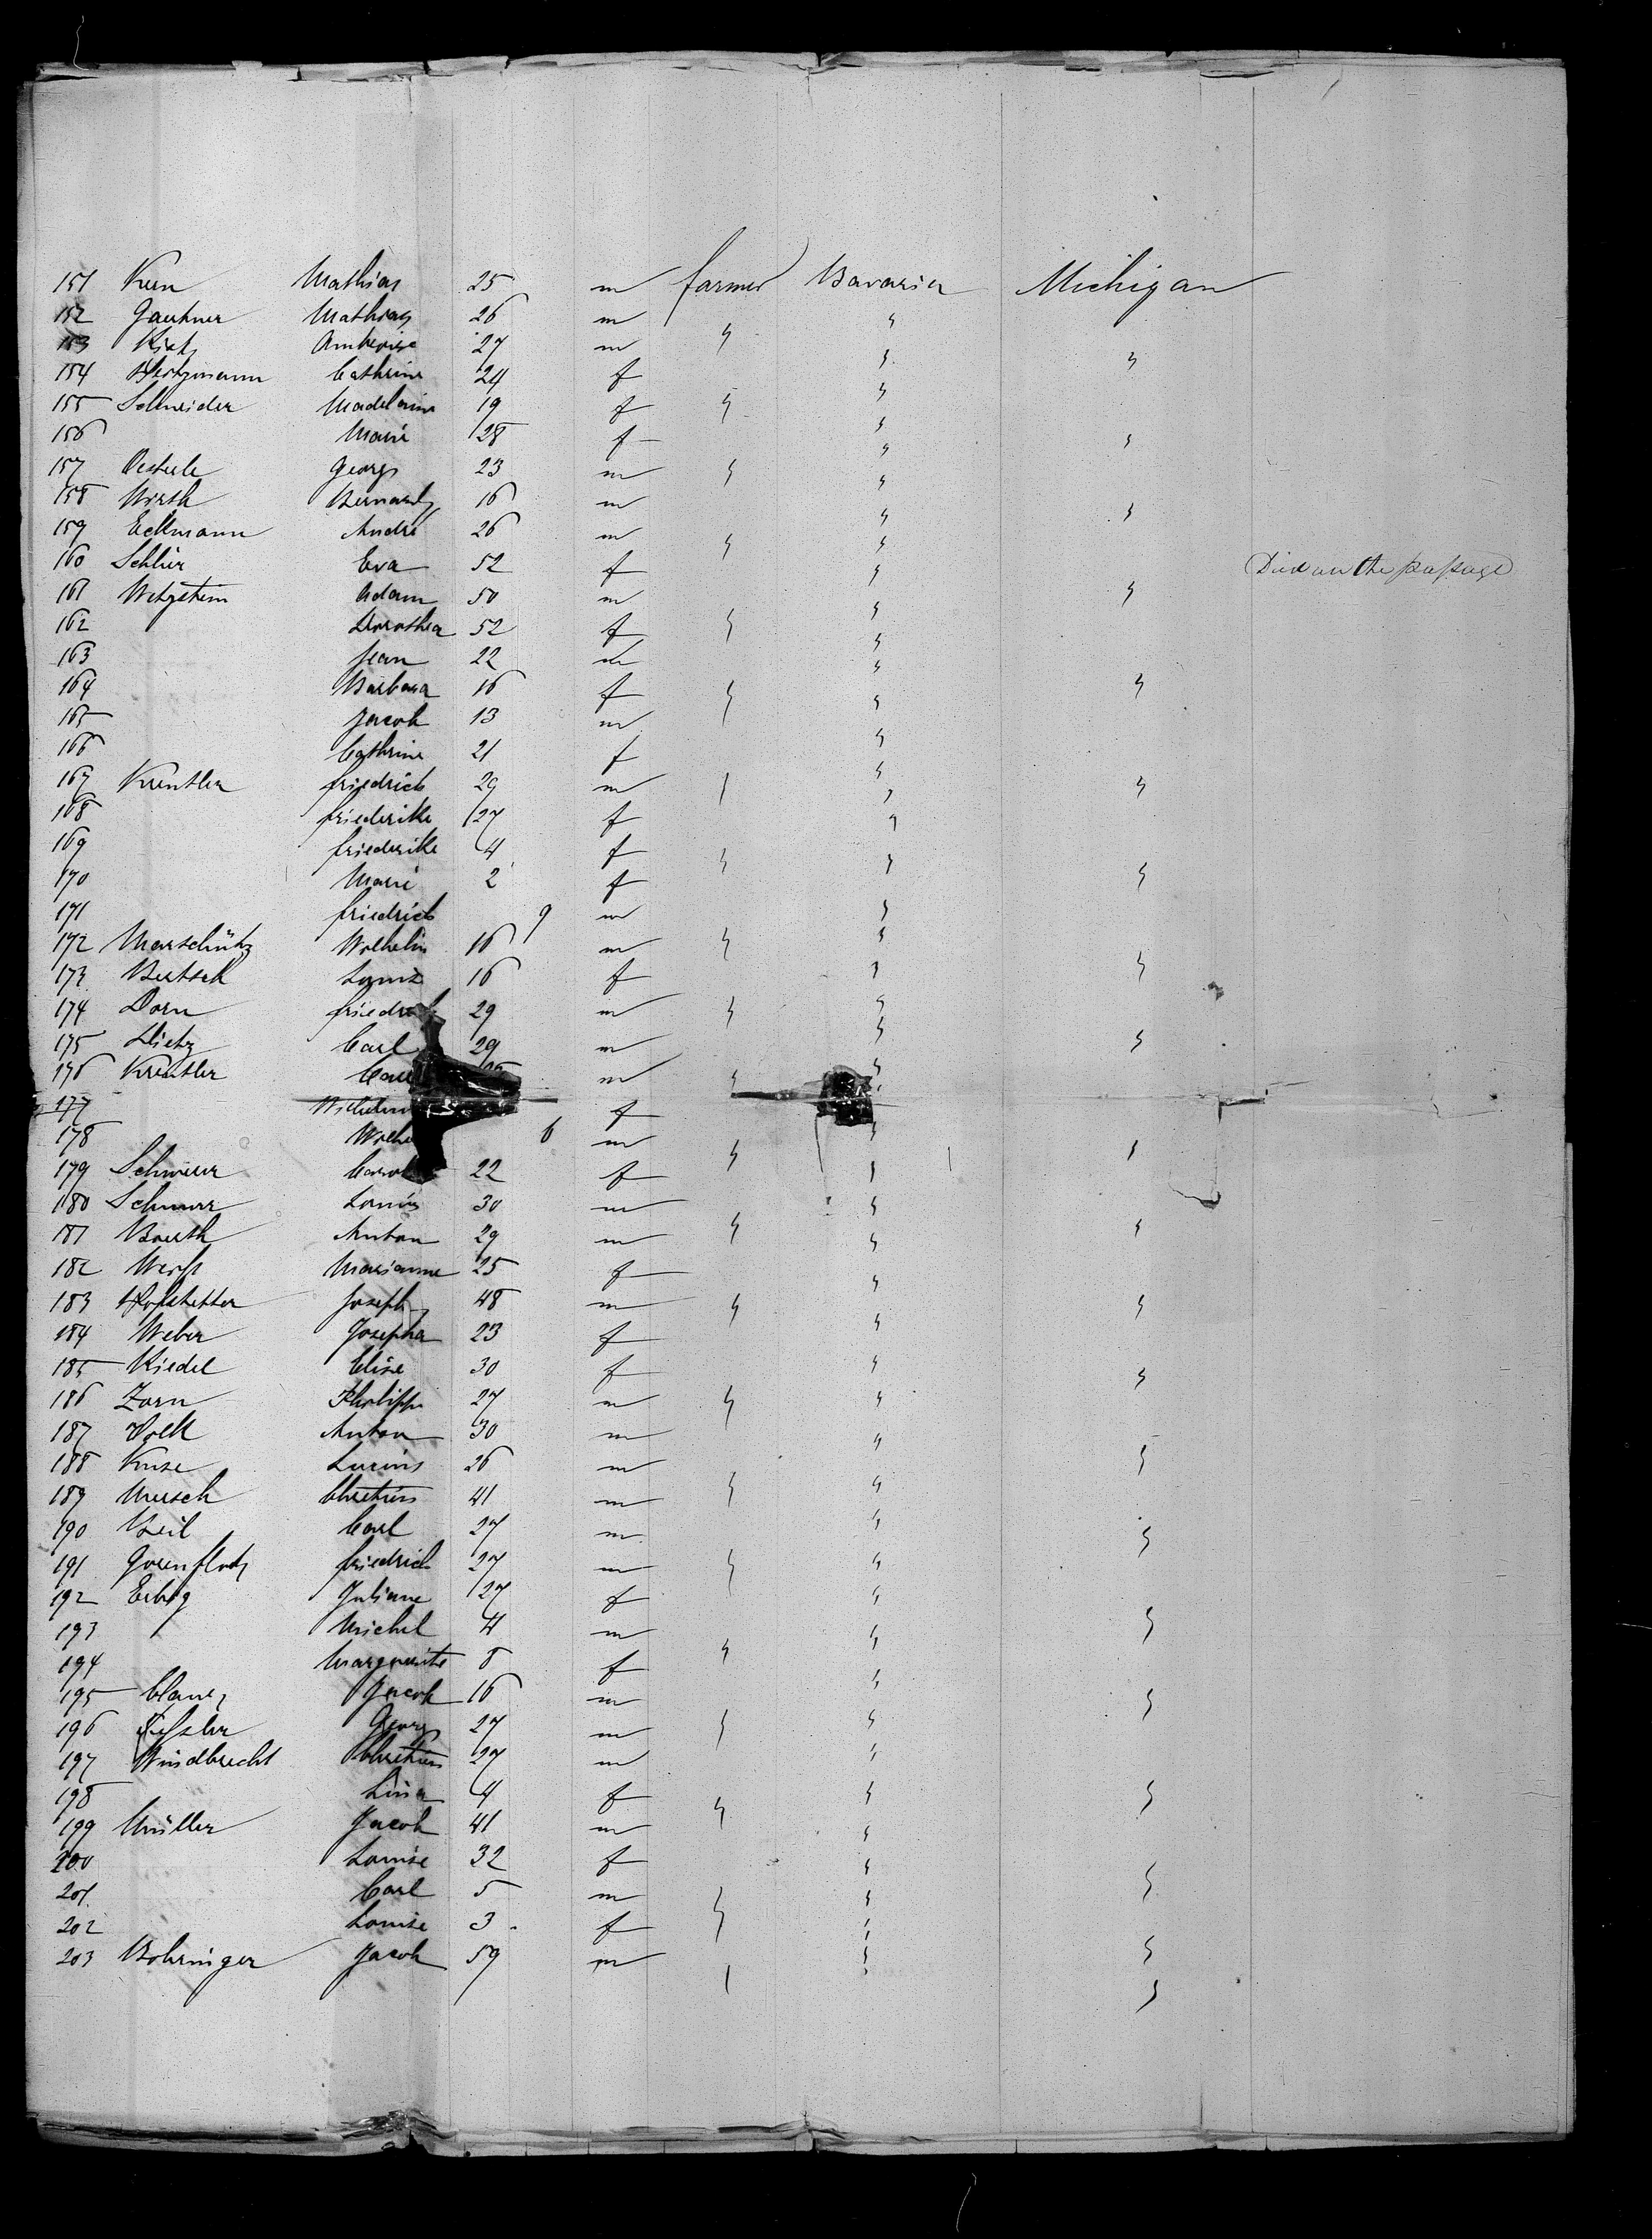 151 Kern Mathias 25 m farmer Bavaria Michigan
152 Gaukner Mathias 26 m
153 Ambroise 27 m
154 Hertzmann Cathrine 24 f
155 Schneider Madelaine 19 f
156 Marie 28 f
157 Georg 23 m
158 Wirth Bernard 16 m
159 Eckmann André 26 m
160 Schlier Eva 52 f Died on the passage
161 Wetzstein Adam 50 m
162 Dorothea 52 f
163 Jean 22 m
164 Barbara 16 f
165 Jacob 13 m
166 Cathrine 21 f
167 Krentler friedrich 29 m
168 friederike 27 f
169 friederike 4 f
170 Marie 2 f
171 friedrich 9 m
172 Marschütz Wilhelm 16 m
173 Bertsch Louise 16 f
174 Dorn friedrich 29 m
175 Dietz Carl 29 m
176 Krentler m
177 f
178 6 m
179 22 f
180 Schnurr Louis 30 m
181 Anton 29 m
182 Marianne 25 f
183 Hofstetter Joseph 48 m
184 Weber Josepha 23 f
185 Riedel Elise 30 f
186 Zorn Philipp 27 m
187 Volk Anton 30 m
188 Kuse 26 m
189 Mersch Chretien 41 m
190 Beil Carl 27 m
191 Gorenflotz friedrich 27 m
192 Erbig Juliane 27 f
193 Michel 4 m
194 Marguerite 8 f
195 Jacob 16 m
196 Georg 27 m
197 Windbrecht Chretien 27 m
198 Lina 4 f
199 Müller Jacob 41 m
200 Louise 32 f
201 Carl 5 m
202 Louise 3 f
203 Bohringer Jacob 59 m